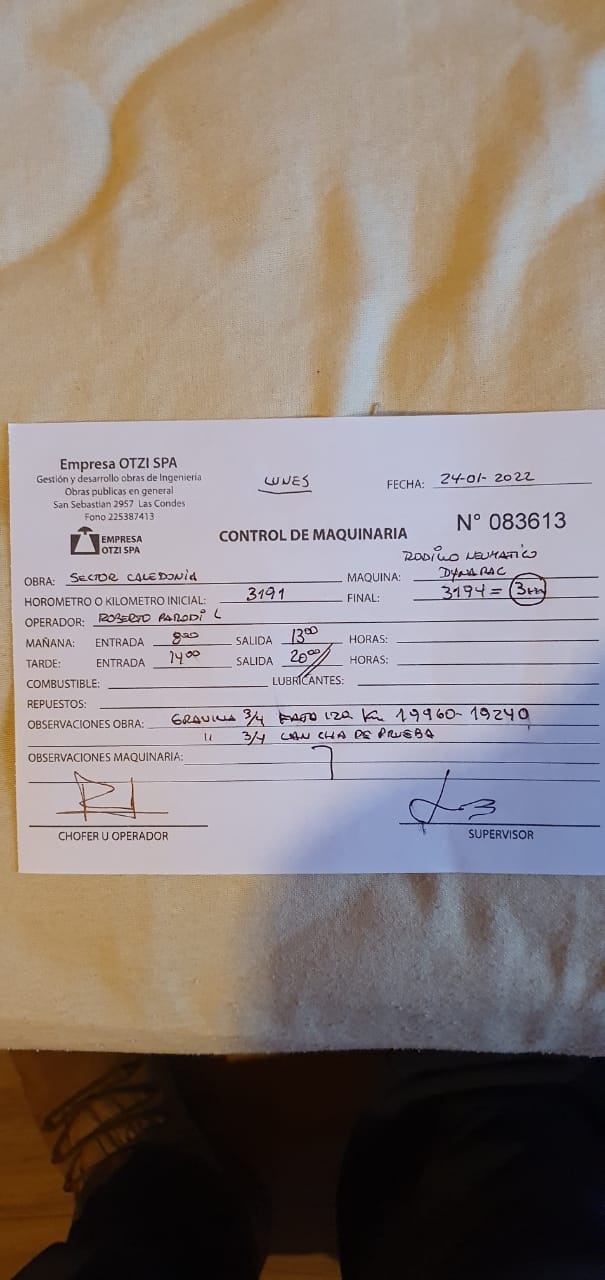 Empresa OTZI SPA
Gestión y desarrollo obras de Ingenieria
Obras publicas en general
San Sebastian 2957 Las Condes
Fono 225387413
EMPRESA
OTZI SPA
LUNES
FECHA: 24-01-2022
CONTROL DE MAQUINARIA
N° 083613
OBRA: SECTOR CALEDONIA
RODILLO NEUMATICO
MAQUINA: DYNAPAC
HOROMETRO O KILOMETRO INICIAL: 3191
FINAL: 3194 = 3
OPERADOR: ROBERTO PARODI L
MAÑANA: ENTRADA 8:00 SALIDA 13:00 HORAS:
TARDE: ENTRADA 14:00 SALIDA 20:00 HORAS:
COMBUSTIBLE: LUBRICANTES:
REPUESTOS:
OBSERVACIONES OBRA: GRAVILLA 3/4 IZQ Km 19960-19240
" 3/4 CANCHA DE PRUEBA
OBSERVACIONES MAQUINARIA:
CHOFER U OPERADOR
SUPERVISOR